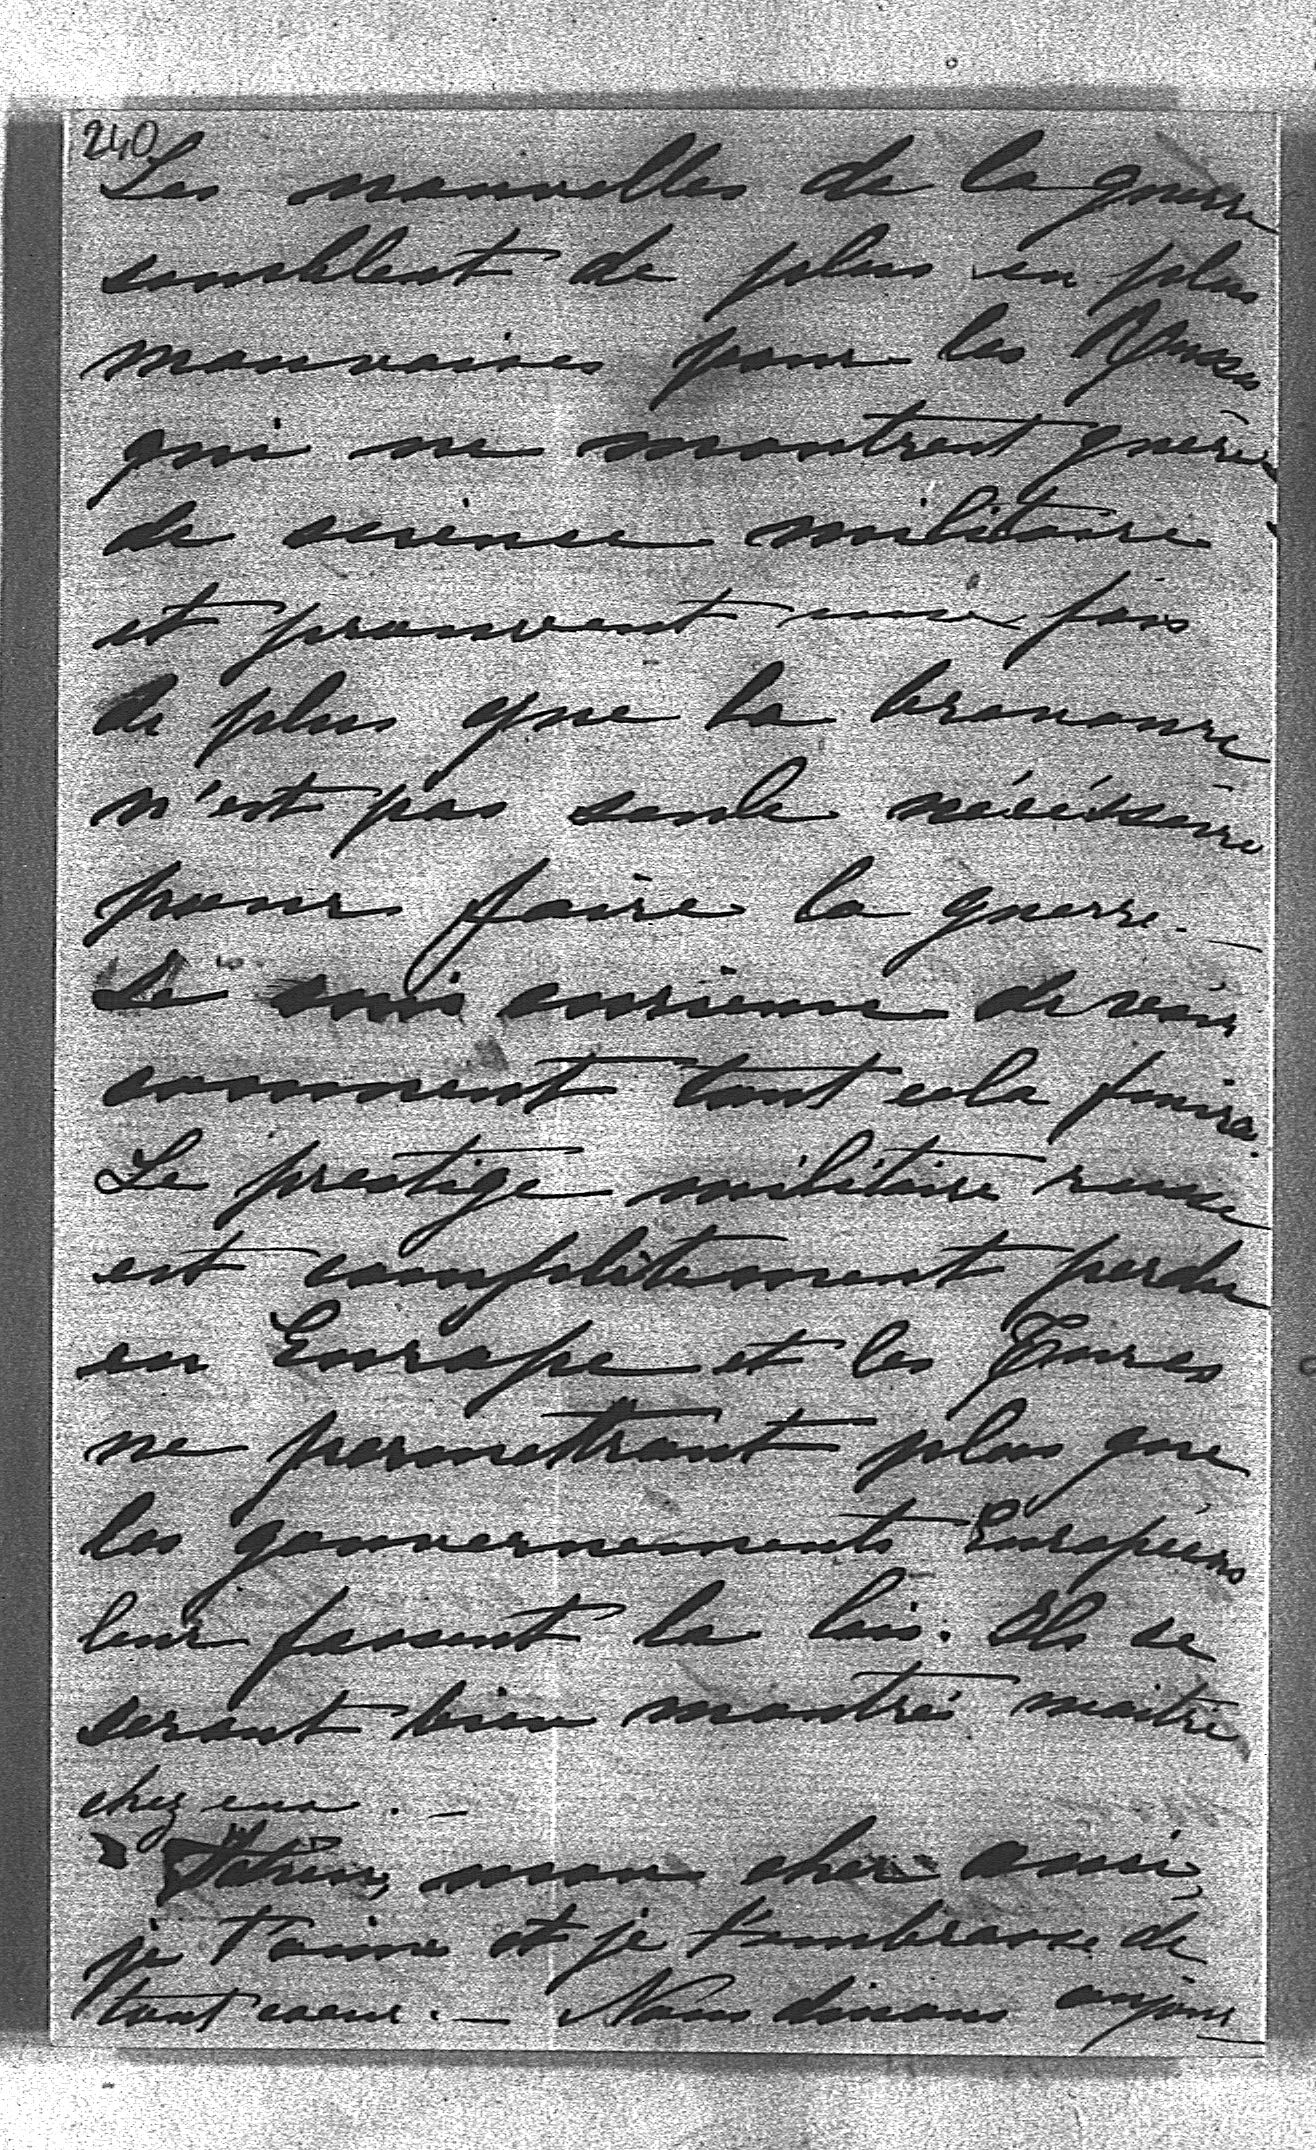 240
Les nouvelles de la guerre
semblent de plus en plus
mauvaises pour les Russes
qui ne montrent guère
de science militaire
et prouvent une fois
de plus que la bravoure
n'est pas seule nécéssaire
pour faire la guerre. _
Je suis curieuse de voir
comment tout cela finira.
Le prestige militaire russe
est complètement perdu
en Europe et les Turcs
ne permettront plus que
les gouvernements Européens
leur fassent la loi. Ils se
seront bien montré maitre
chez eux. _
mon cher ami,
je t'aime et je t'embrasse de
tout coeur. _ Nous dinons aujour